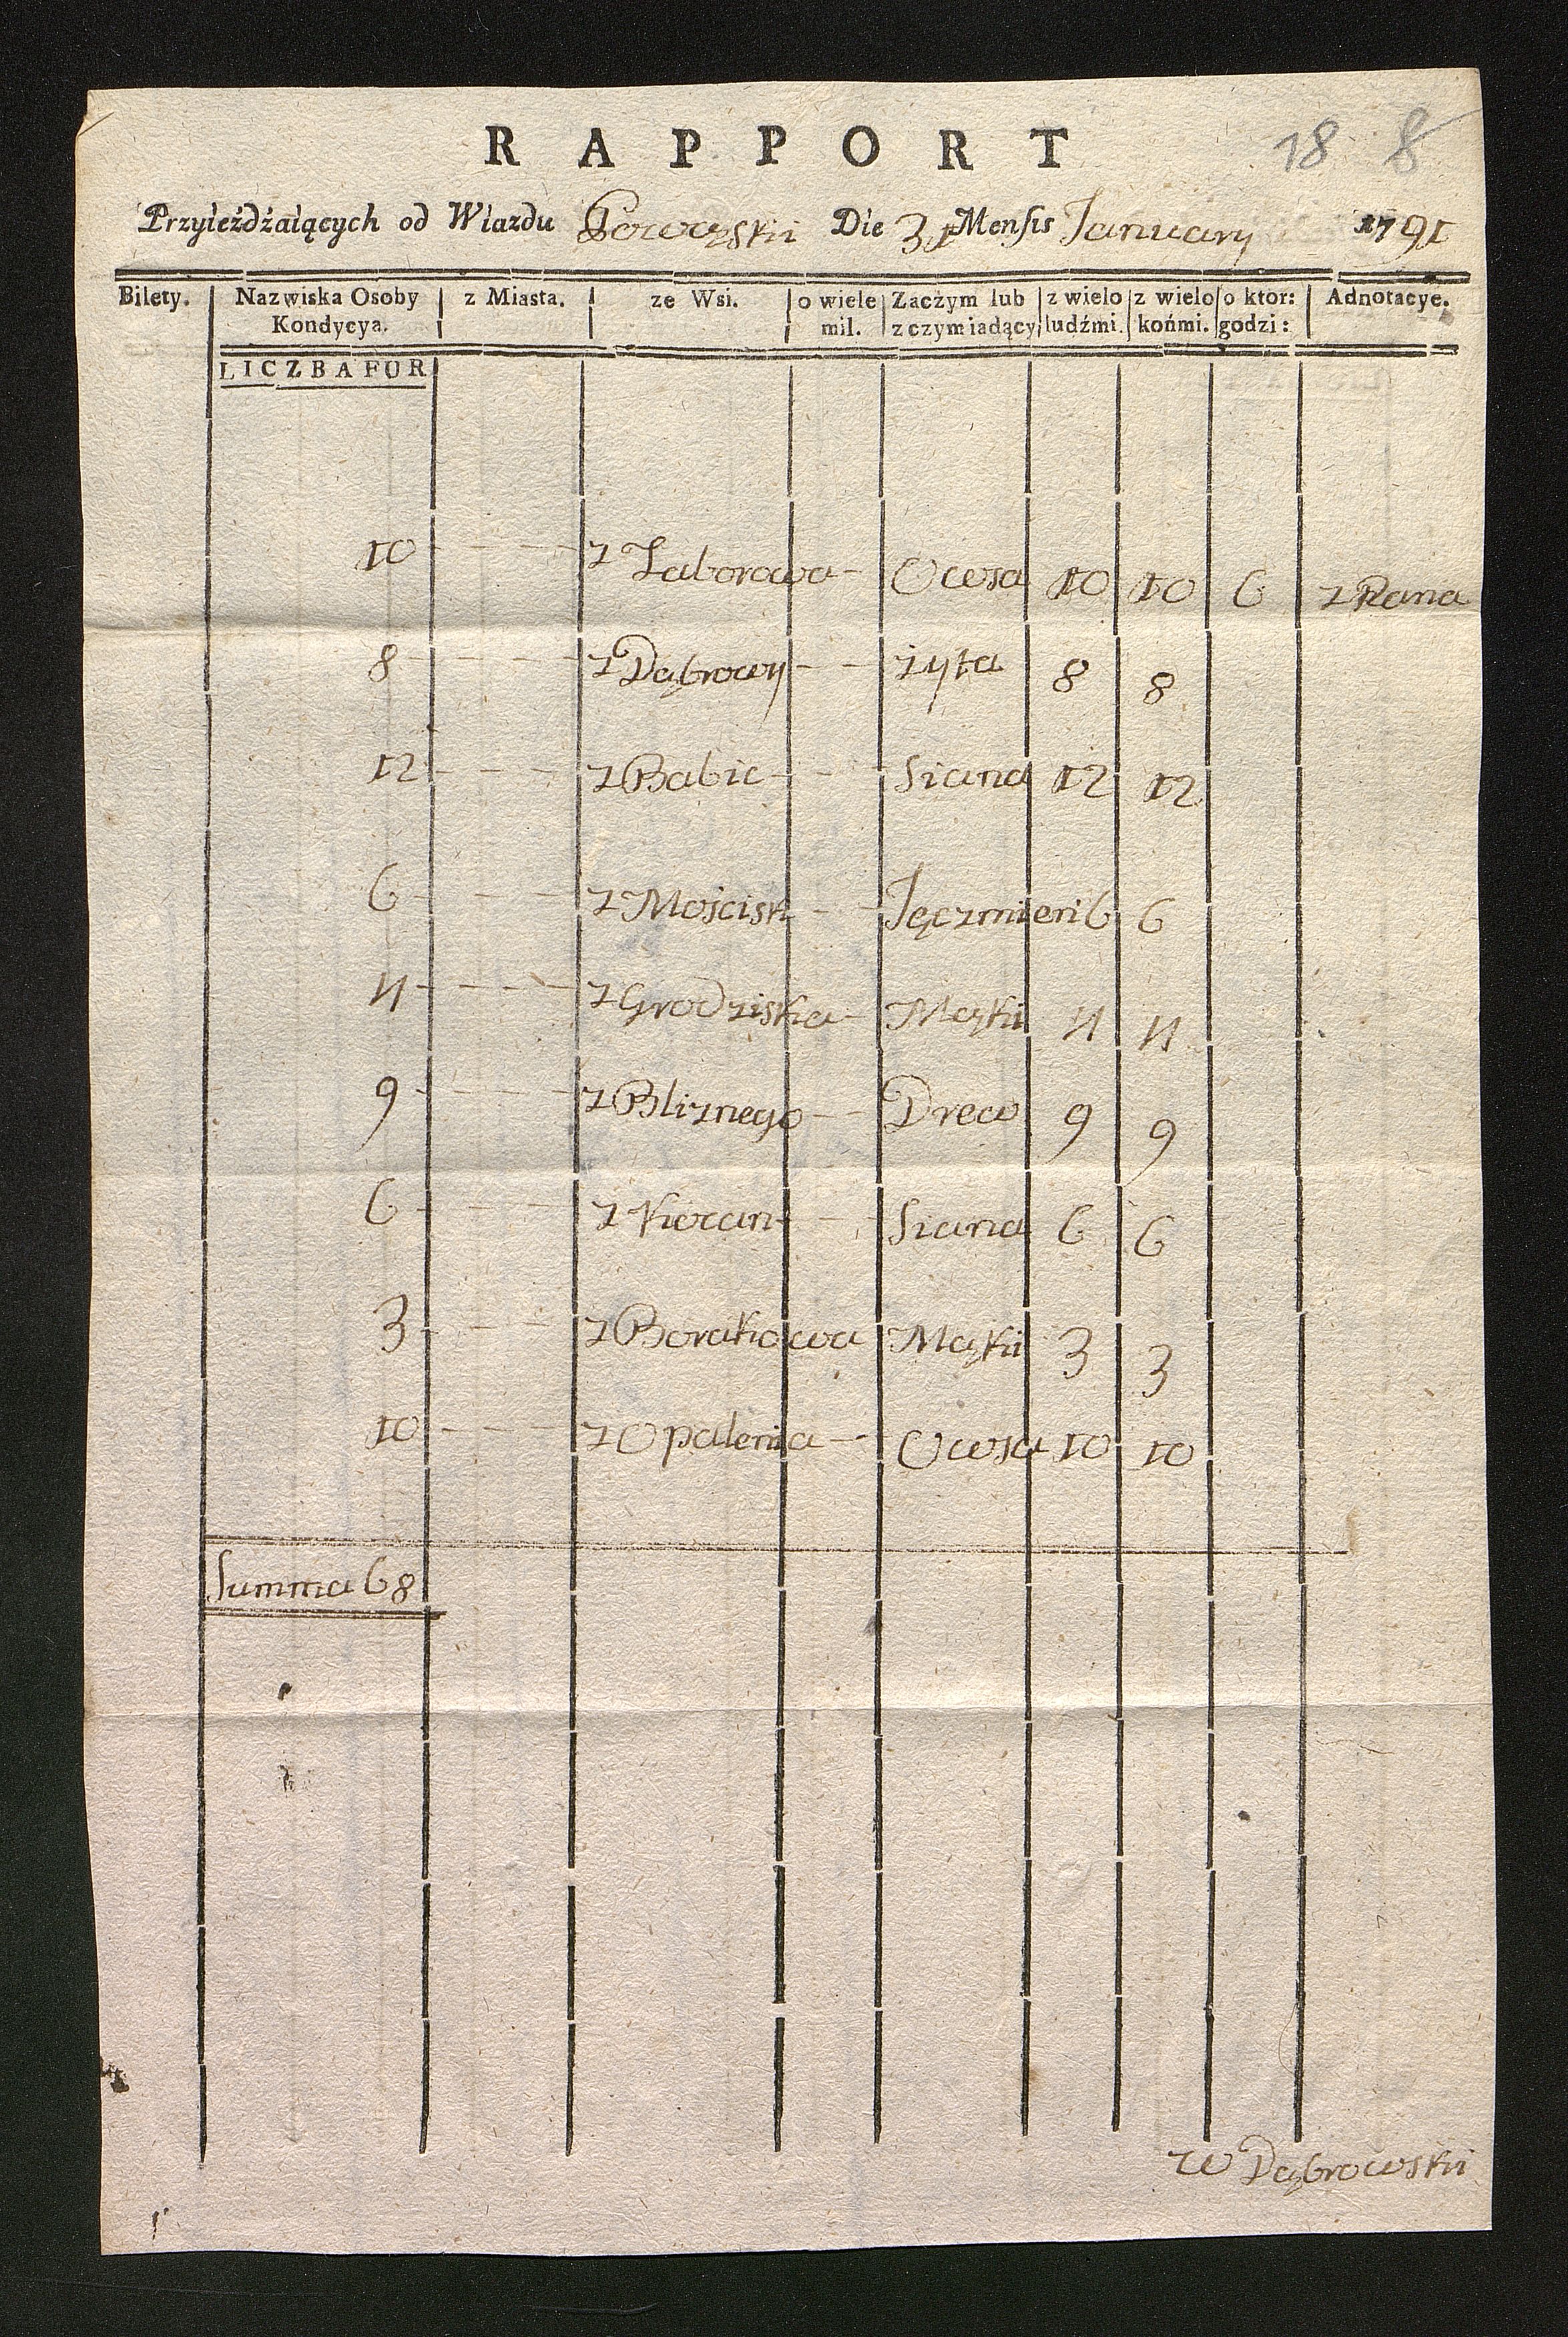 18 8
RAPPORT
Przyieżdżaiących od Wiazdu Powązskii Die 31 Mensis January 1791
Bilety. Nazwiska Osoby Kondycya. z Miasta. ze Wsi. o wiele mil. Zaczym lub z czym iadący z wielo ludźmi. z wielo końmi. o ktor: godzi: Adnotacye.
LICZBA FUR
10 - - - z Zaborowa - Owsa 10 10 6 z Rana
8 - - - z Dąbrowy - - żyta 8 8
12 - - - z Babic - - Siana 12 12
6 - - - z Mościsk - - Jęczmień 6 6
4 - - - z Grodziska - Mąki 4 4
9 - - - z Bliznego - - Drew 9 9
6 - - - z Kocan - - Siana 6 6
3 - - - z Borakowa Mąki 3 3
10 - - - z Opalenia - - Owsa 10 10
Summa 68
W Dąbrowski